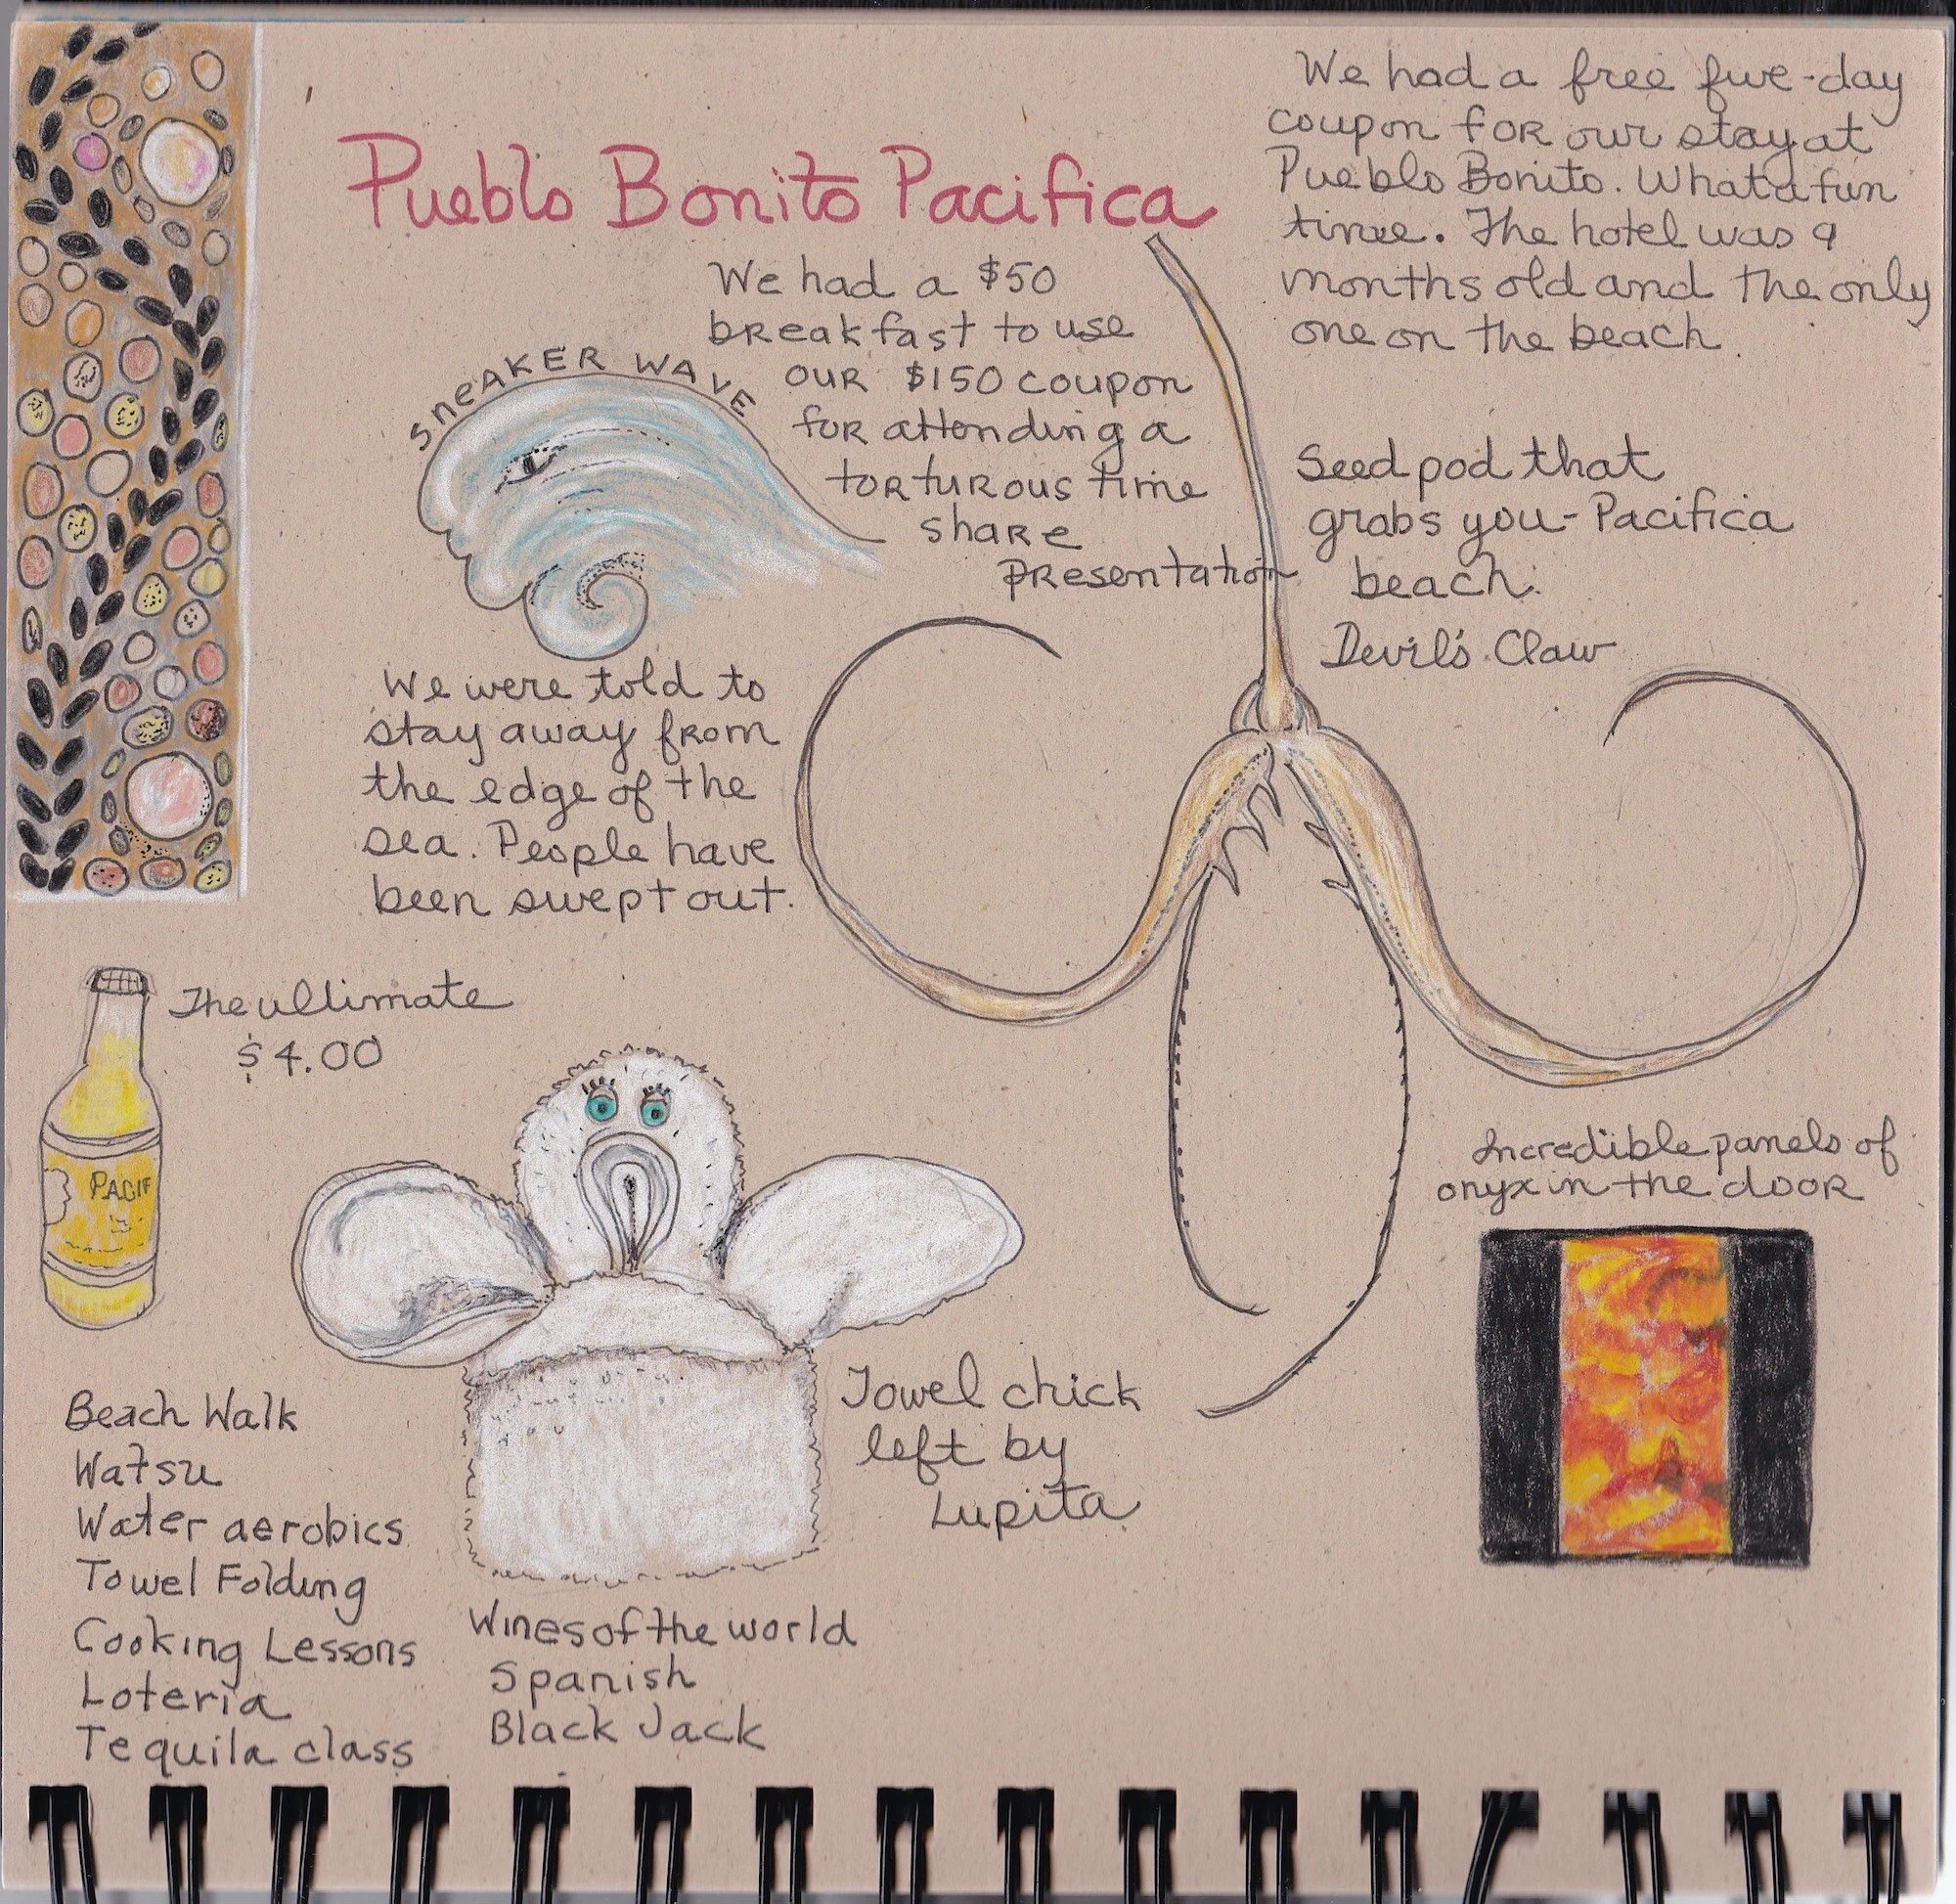 Pueblo Bonito Pacifica
We had a free five-day
coupon for our stay at
Pueblo Bonito. What a fun
time. The hotel was 9
months old and the only
one on the beach.
We had a $50
breakfast to use
our $150 coupon
for attending a
torturous time
share
presentation
SneAKER WAVE
We were told to
stay away from
the edge of the
sea. People have
been swept out.
Seed pod that
grabs you - Pacifica
beach.
Devil's Claw
The ultimate
$4.00
PACIF
Towel chick
left by
Lupita
Incredible panels of
onyx in the door
Beach Walk
Watsu
Water aerobics
Towel Folding
Cooking Lessons
Loteria
Tequila class
Wines of the world
Spanish
Black Jack